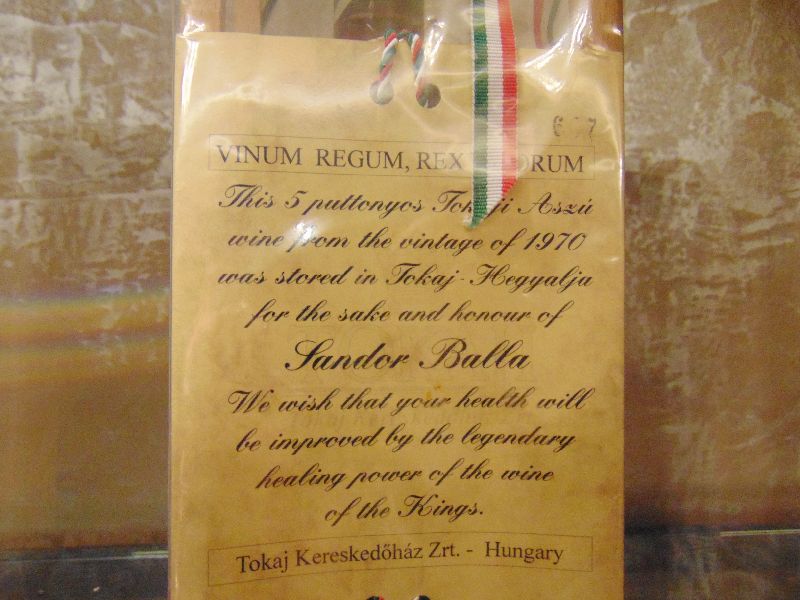 VINUM REGUM, REX
This 5 puttonyos Tokaji Aszú
wine from the vintage of 1970
was stored in Tokaj-Hegyalja
for the sake and honour of
Sandor Balla
We wish that your health will
be improved by the legendary
healing power of the wine
of the Kings.
Tokaj Kereskedőház Zrt. - Hungary